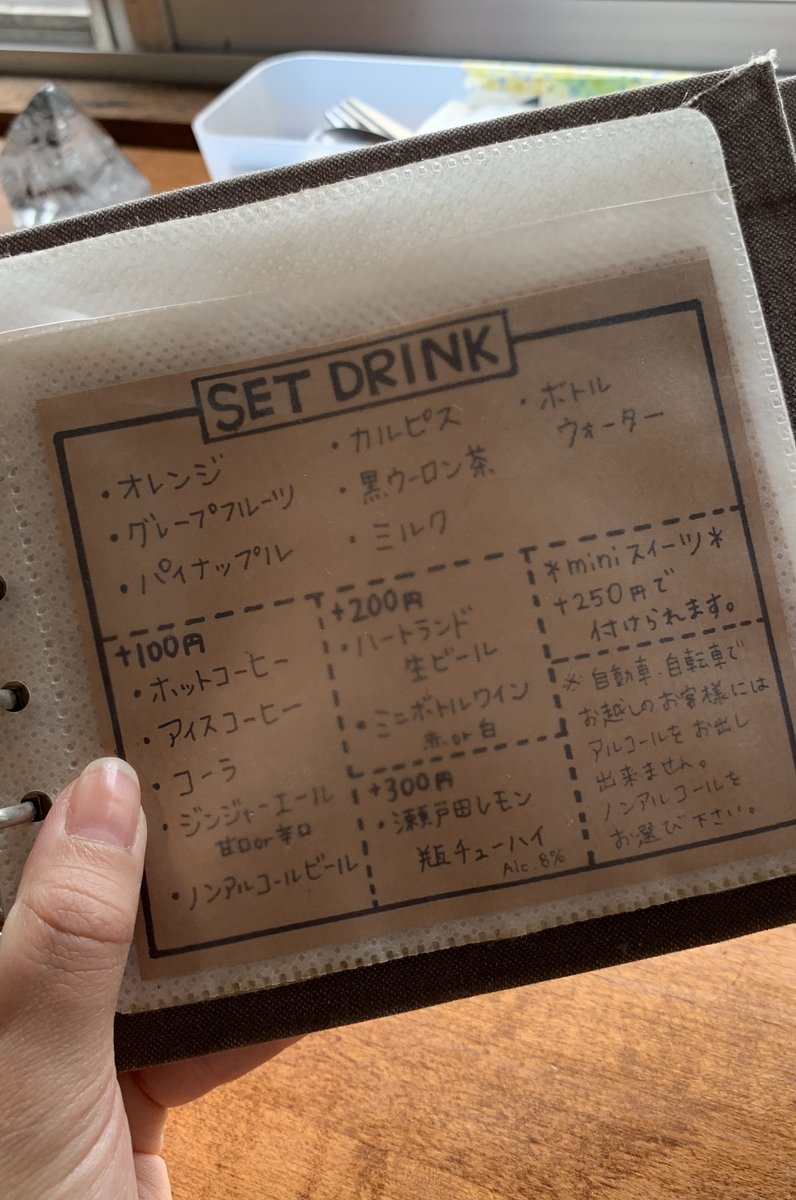 SET DRINK
・オレンジ
・グレープフルーツ
・パイナップル
・カルピス
・黒ウーロン茶
・ミルク
・ボトル
ウォーター
+100円
・ホットコーヒー
・アイスコーヒー
・コーラ
・ジンジャーエール
甘口or辛口
・ノンアルコールビール
+200円
・ハートランド
生ビール
・ミニボトルワイン
赤or白
+300円
・瀬戸田レモン
瓶チューハイ
Alc.8%
*miniスイーツ*
+250円で
付けられます。
※自動車・自転車で
お越しのお客様には
アルコールをお出し
出来ません。
ノンアルコールを
お選び下さい。